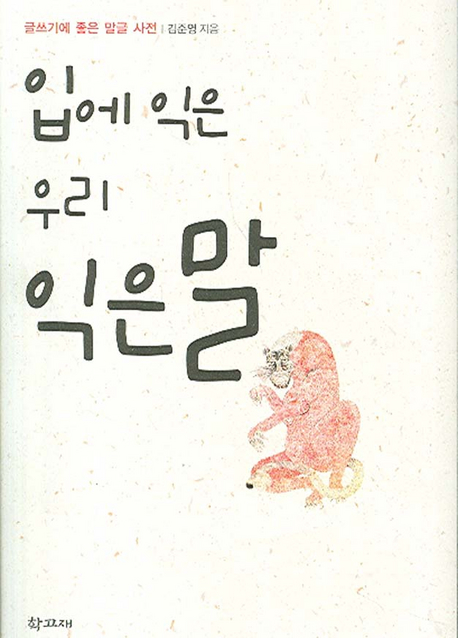 글쓰기에 좋은 말글 사전 | 김준영 지음
입에 익은
우리
익은말
학고재